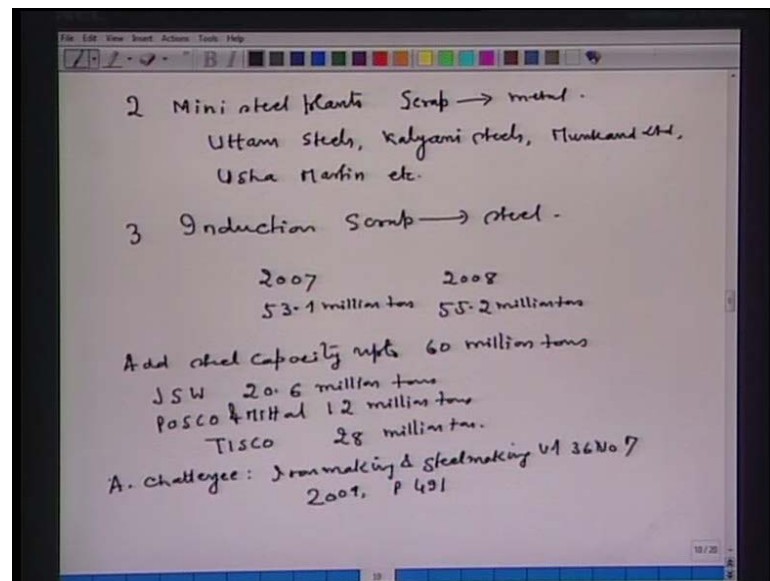 File Edit View Insert Actions Tools Help
B I
2 Mini steel plants Scrap → metal.
Uttam Steels, Kalyani steels, Munkand Ltd,
Usha Martin etc.
3 Induction Scrap → steel.
2007 2008
53.1 million tons 55.2 million tons
Add steel capacity upto 60 million tons
JSW 20.6 million tons
POSCO & Mittal 12 million tons
TISCO 28 million ton.
A. Chatterjee: Ironmaking & steelmaking Vol 36 No 7
2009, P 491
10/20
10